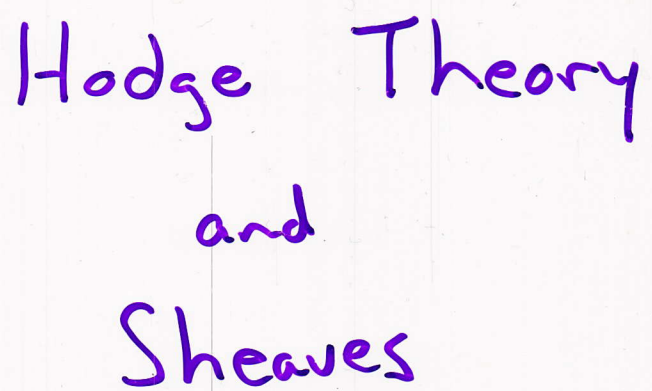 Hodge Theory
and
Sheaves